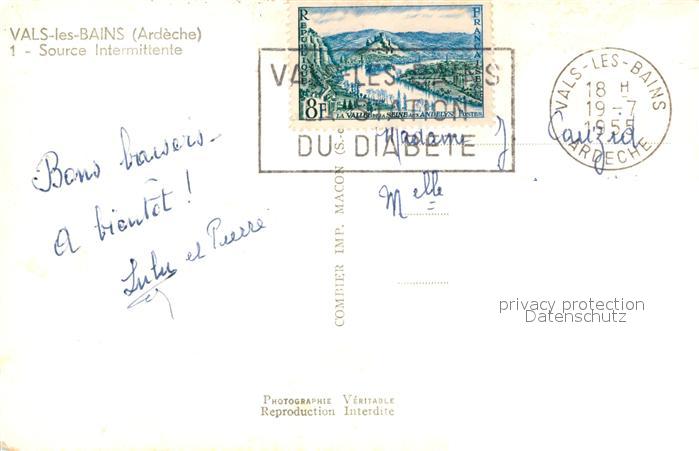 VALS-les-BAINS (Ardèche)
1 - Source Intermittente
Bons baisers -
A bientôt !
Lulu et Pierre
COMBIER IMP. MACON (S.-
REPUBLIQUE
FRANÇAISE
8F
LA VALLÉE DE LA SEINE AUX ANDELYS
POSTES
VALS-LES-BAINS
STATION
DU DIABETE
VALS-LES-BAINS
18 H
19-7
1955
ARDECHE
Madame J
Melle
privacy protection
Datenschutz
PHOTOGRAPHIE VÉRITABLE
Reproduction Interdite